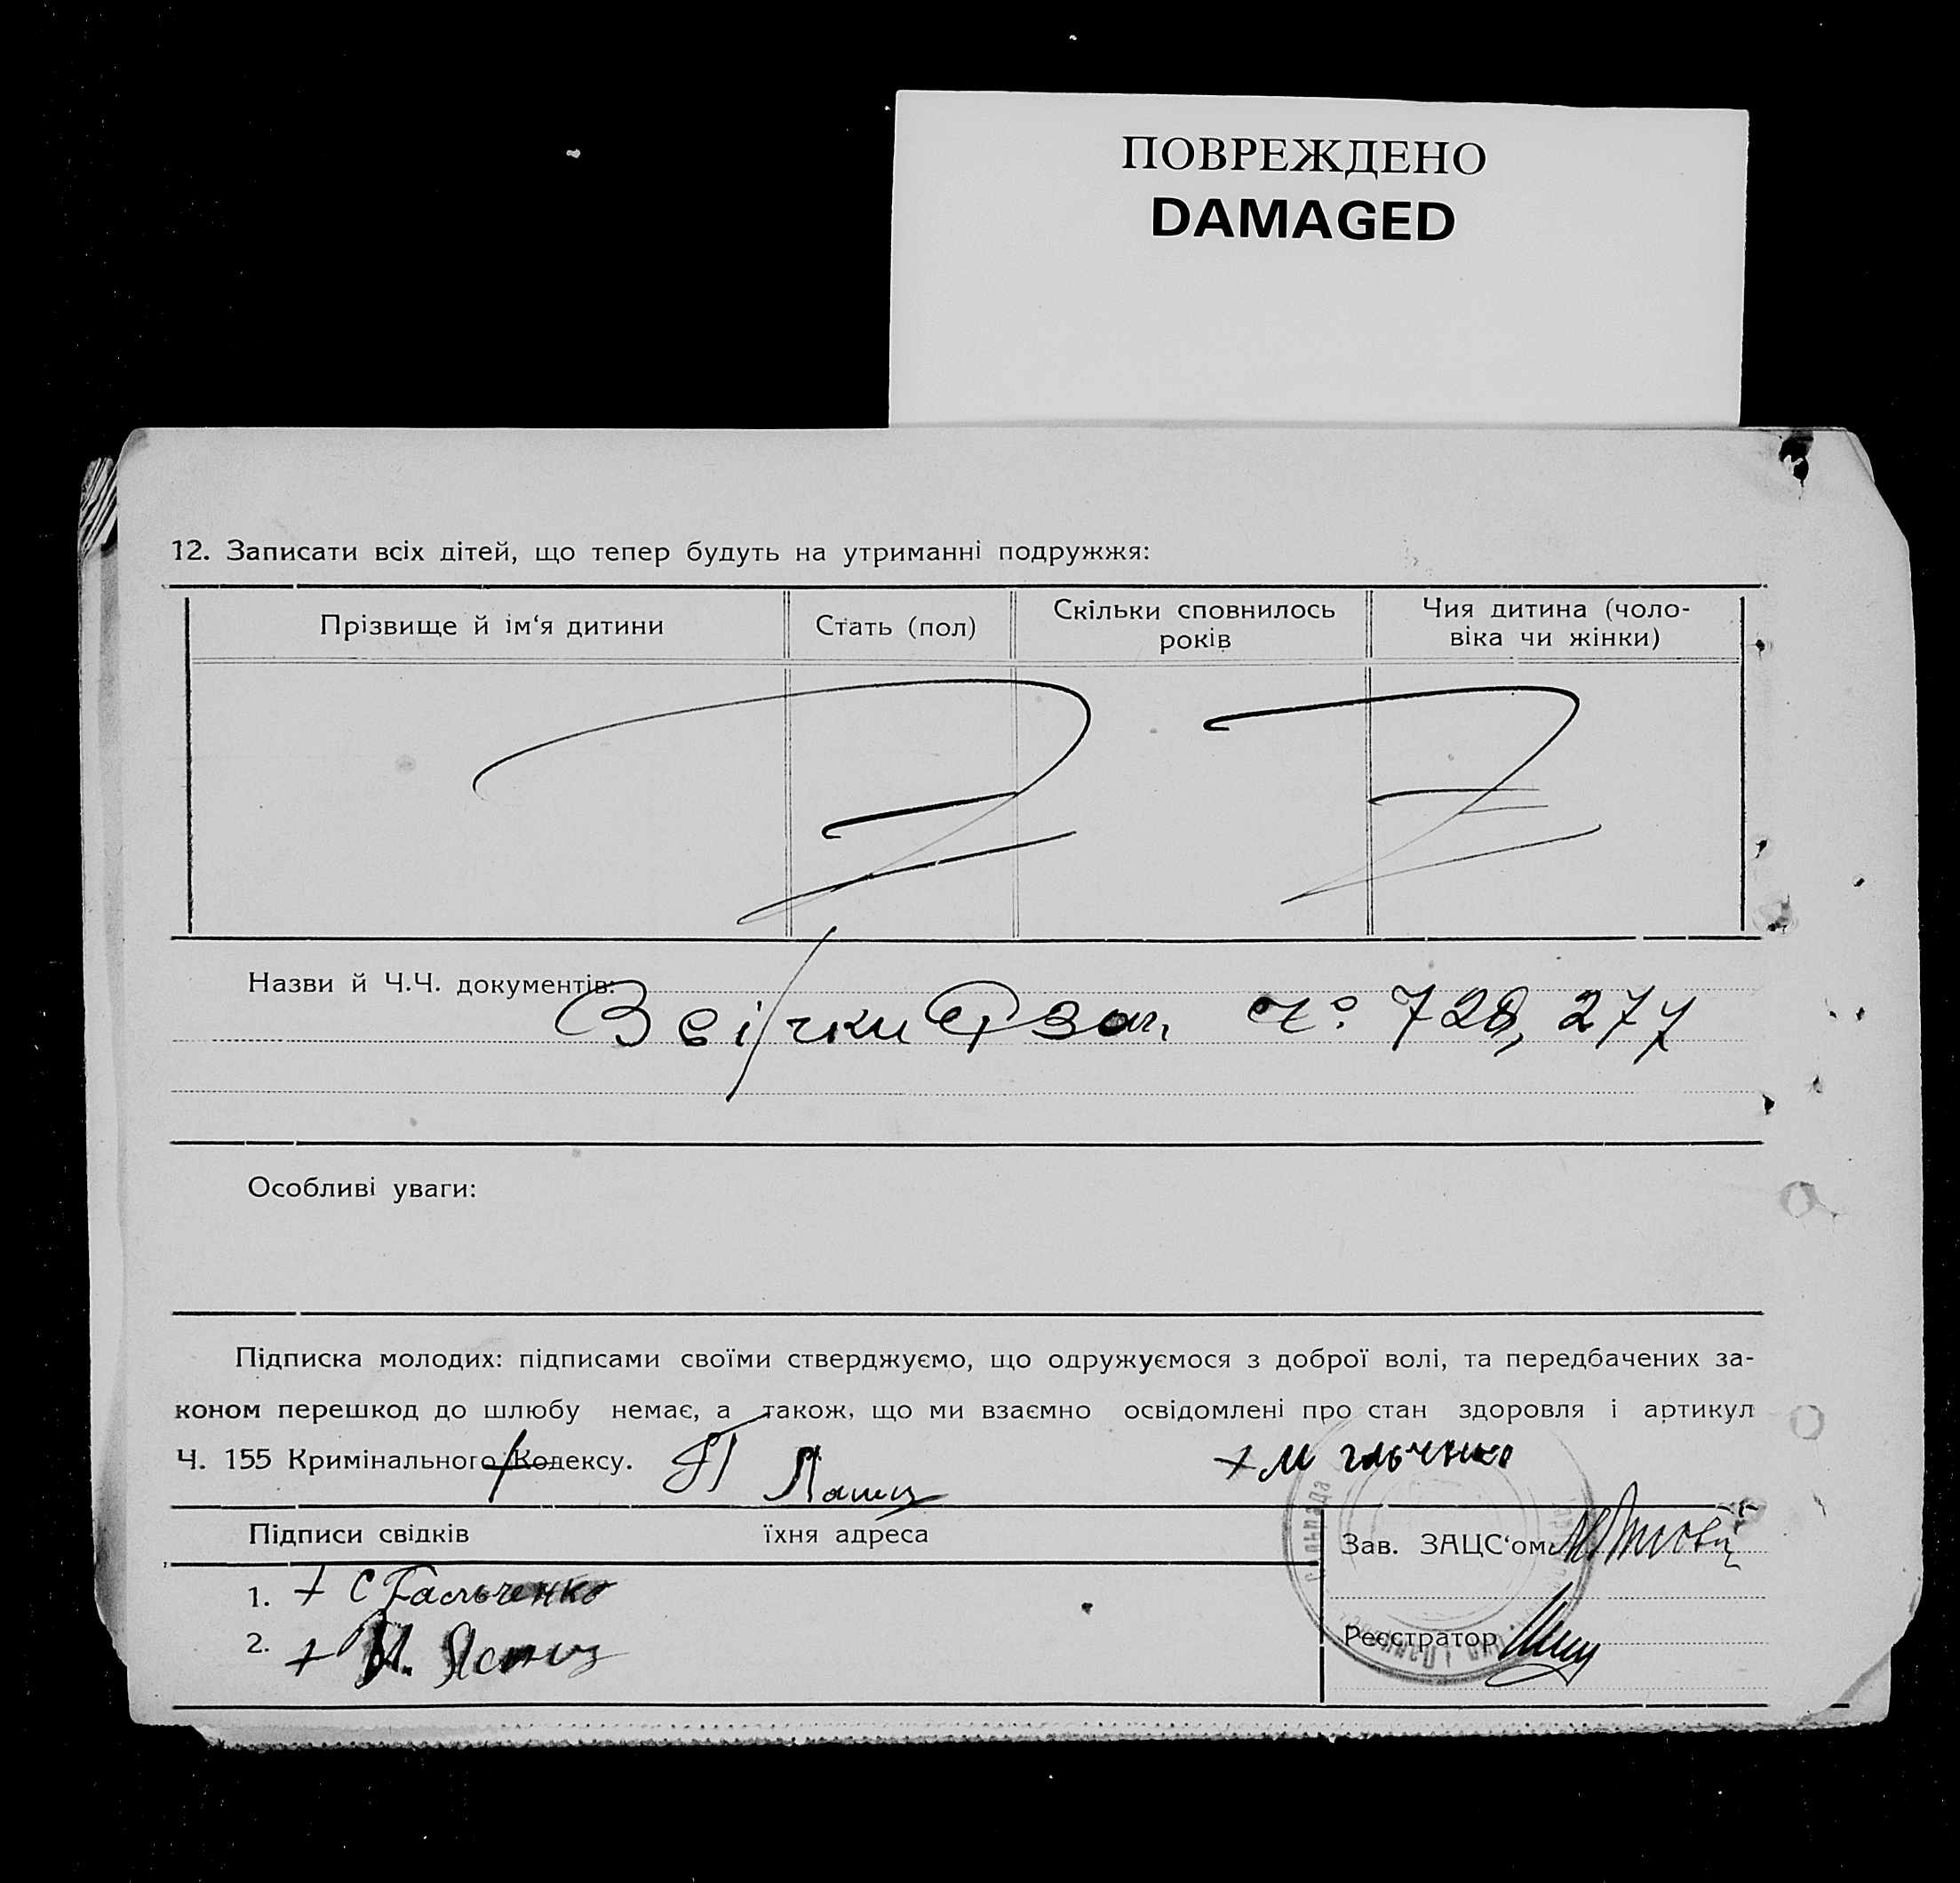 ПОВРЕЖДЕНО
DAMAGED
12. Записати всіх дітей, що тепер будуть на утриманні подружжя:
Прізвище й ім‘я дитини
Стать (пол)
Скільки сповнилось
років
Чия дитина (чоло-
віка чи жінки)
Назви й Ч.Ч. документів:
728, 277
Особливі уваги:
Підписка молодих: підписами своїми стверджуємо, що одружуємося з доброї волі, та передбачених за-
коном перешкод до шлюбу немає, а також, що ми взаємно освідомлені про стан здоровля і артикул
Ч. 155 Кримінального Кодексу.
Підписи свідків
їхня адреса
Зав. ЗАЦС‘ом
1. + С Гальченко
2. +
Реєстратор